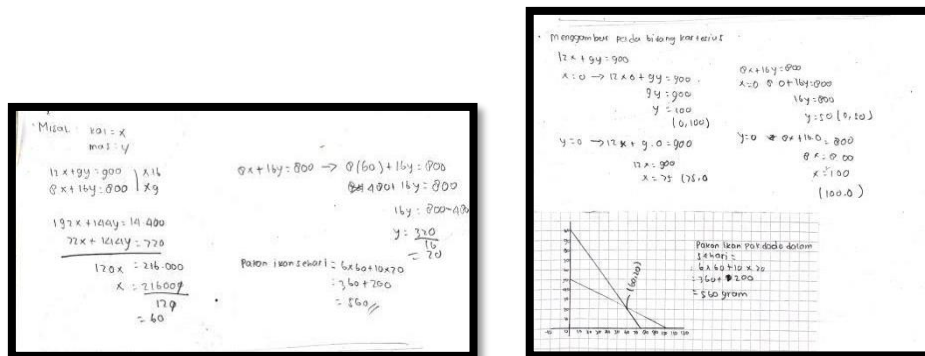 Misal : koi = x
mas = y
12x + 9y = 900 | x16
8x + 16y = 800 | x9
192x + 144y = 14.400
72x + 144y = 720
120x = 216.000
x = 21600
120
= 60
8x + 16y = 800 → 8(60) + 16y = 800
480 + 16y = 800
16y = 800 - 480
y = 320
16
= 20
Pakan ikan sehari = 6x60 + 10x20
= 360 + 200
= 560
Menggambar pada bidang kartesius
12x + 9y = 900
x = 0 → 12x0 + 9y = 900
9y = 900
y = 100
(0,100)
y = 0 → 12x + 9.0 = 900
12x = 900
x = 75 (75.0
8x + 16y = 800
x = 0 8 0 + 16y = 800
16y = 800
y = 50 (0,50)
y = 0 8x + 16.0 = 800
8x = 800
x = 100
(100.0)
(60,20)
Pakan ikan Pak dade dalam
sehari =
= 6x60 + 10x20
= 360 + 200
= 560 gram